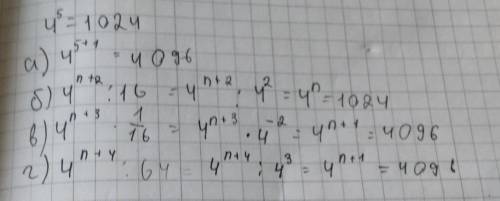 4⁵ = 1024
а) 4⁵⁺¹ = 4096
б) 4ⁿ⁺² : 16 = 4ⁿ⁺² : 4² = 4ⁿ = 1024
в) 4ⁿ⁺³ · 1/16 = 4ⁿ⁺³ · 4⁻² = 4ⁿ⁺¹ = 4096
г) 4ⁿ⁺⁴ : 64 = 4ⁿ⁺⁴ : 4³ = 4ⁿ⁺¹ = 4096